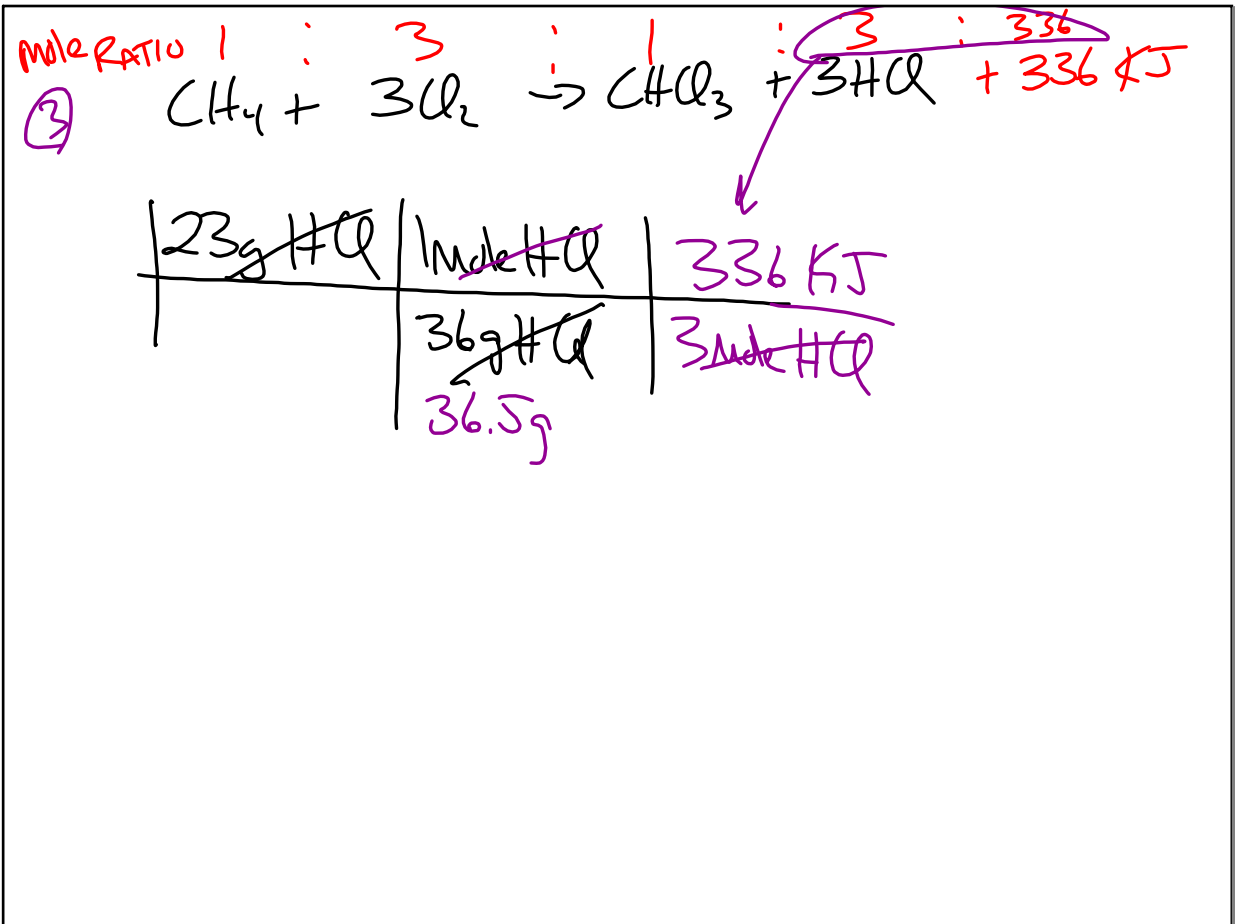 Mole RATIO 1 : 3 : 1 : 3 : 336
③ CH₄ + 3Cl₂ → CHCl₃ + 3HCl + 336 KJ
23g HCl 1 Mole HCl 336 KJ
36g HCl 3 Mole HCl
36.5g